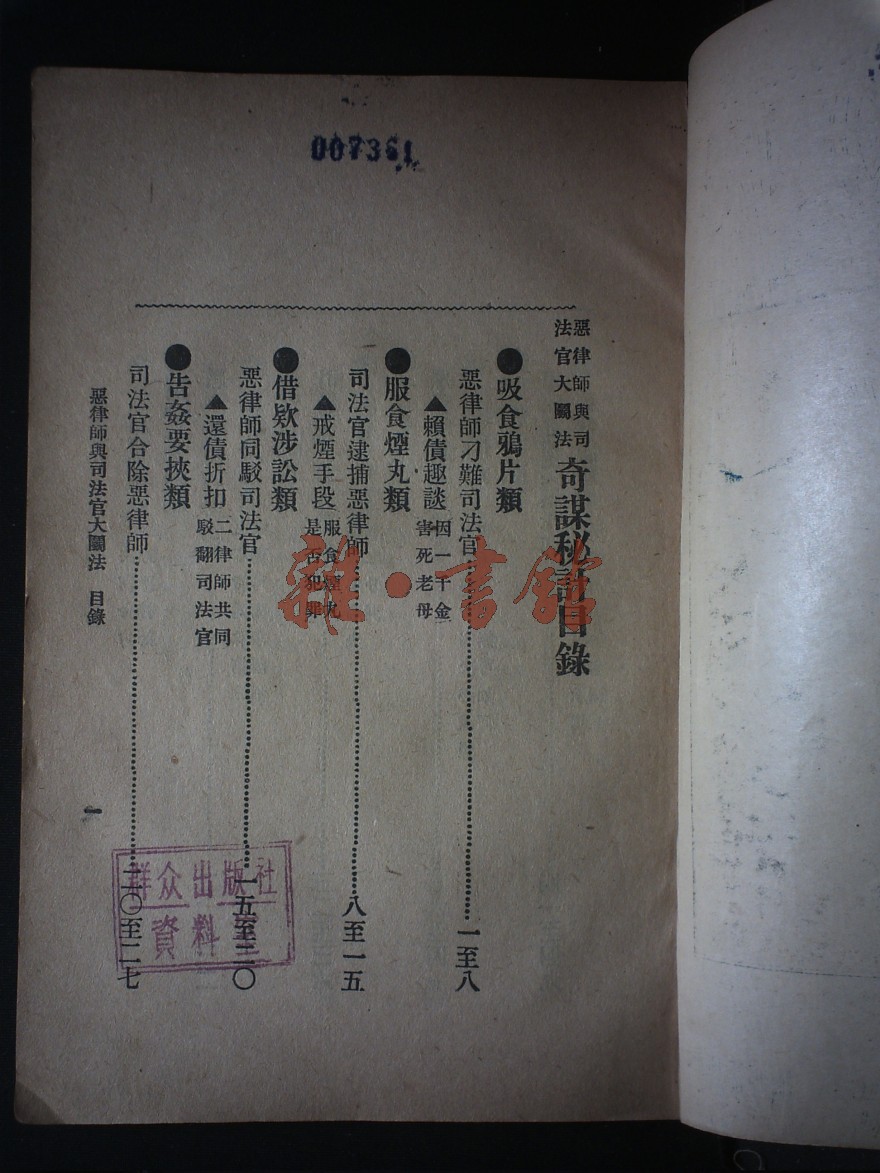 007361
惡律師與司
法官大鬭法
奇謀秘計目錄
●吸食鴉片類
惡律師刁難司法官…………一至八
▲賴債趣談
因一千金
害死老母
●服食煙丸類
司法官逮捕惡律師…………八至一五
▲戒煙手段
服食煙丸
是否犯罪
●借欵涉訟類
惡律師同駁司法官…………一五至二〇
▲還債折扣
二律師共同
駁翻司法官
●告姦要挾類
司法官合除惡律師…………二〇至二七
惡律師與司法官大鬭法 目錄
一
群众出版社
資料室
雜·書館